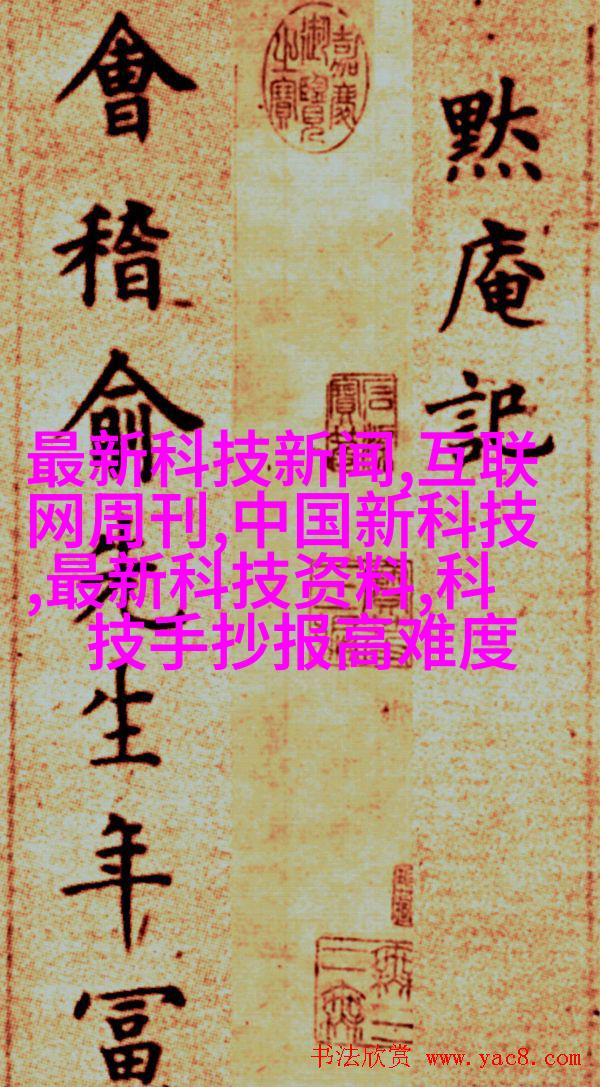 黙庵記
會稽俞先生年冨
嘉慶御覽之寶
最新科技新闻,互联
网周刊,中国新科技
,最新科技资料,科
技手抄报高难度
书法欣赏 www.yac8.com